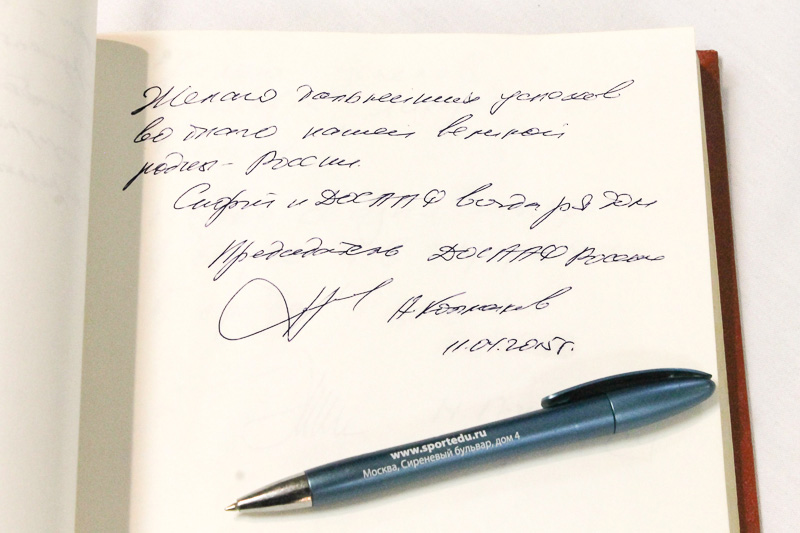 Желаю дальнейших успехов
во благо нашей великой
родины - России.
Спорт и ДОСААФ всегда рядом
Председатель ДОСААФ России
А. Колмаков
11.04.2015г.
www.sportedu.ru
Москва, Сиреневый бульвар, дом 4